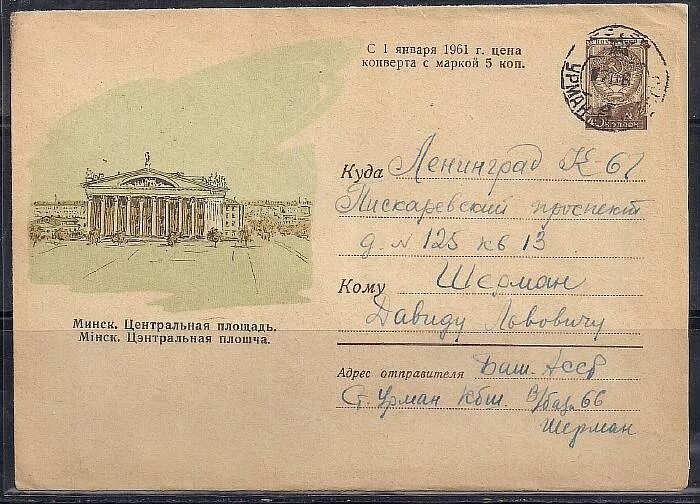 С 1 января 1961 г. цена
конверта с маркой 5 коп.
УРМАН
Куда Ленинград К-67
Пискаревский проспект
д. N 125 кв 13
Кому Шерман
Давиду Львовичу
Минск. Центральная площадь.
Мінск. Цэнтральная плошча.
Адрес отправителя Баш. АССР
Ст. Урман Кбш. 66
Шерман